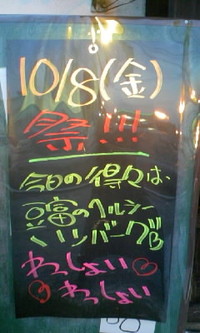 10/8(金)
祭!!!
今日の得々は、
豆富のヘルシー
ハンバーグ
わっしょい♡
わっしょい♡